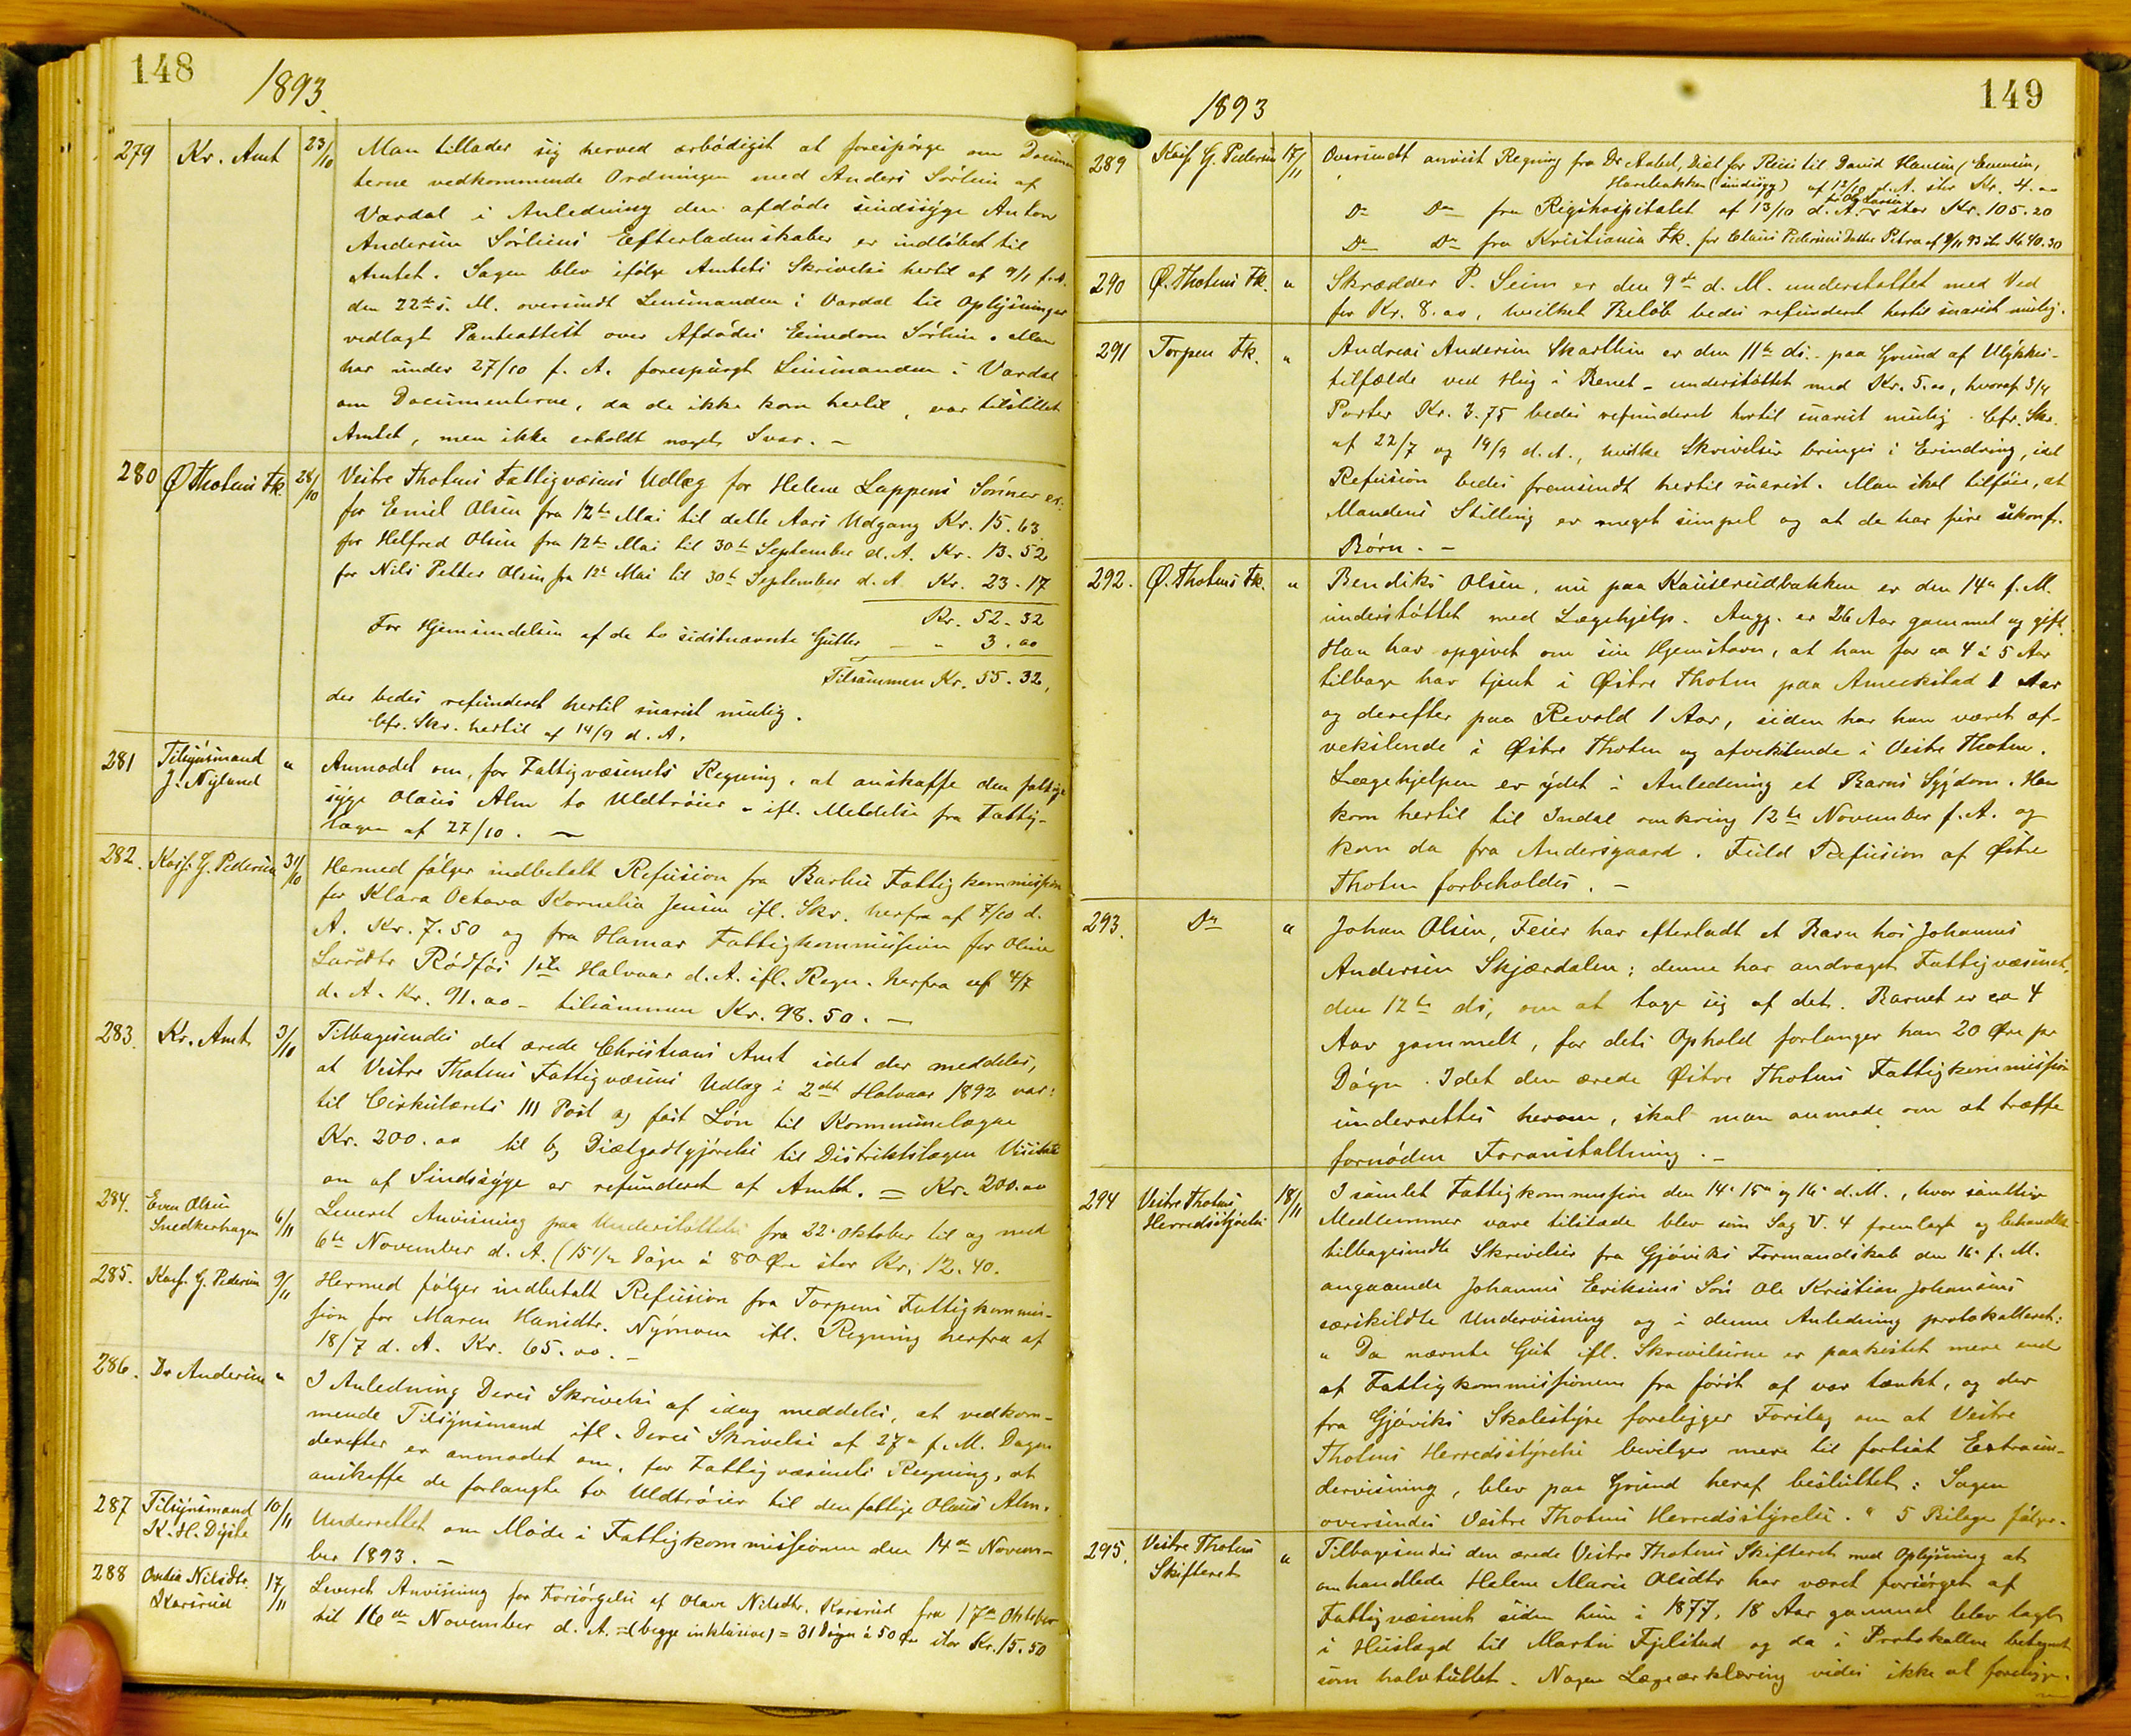 148
1893.
279 Kr. Amt 23/10 Man tillader sig herved ærbødigst at forespørge om Documen
terne vedkommende Ordningen med Anders Sørlien af
Vardal i Anledning den afdøde sindssyge Anton
Andersen Sørliens Efterladenskaber er indløbet til
Amtet. Sagen blev ifølge Amtets Skrivelse hertil af 9/1 f. A.
den 22de s. M. oversendt Lensmanden i Vardal til Oplysninger
vedlagt Panteattest over Afdødes Eiendom Sørlien. Man
har under 27/10 f. A. forespurgt Lensmanden i Vardal
om Documenterne, da de ikke kom hertil, var tilstillet
Amtet, men ikke erholdt noget Svar. —
280 Ø Thotens Fk. 28/10 Vestre Thotens Fattigvæsens Udlæg for Helene Lappens Sønner er:
for Emil Olsen fra 12te Mai til dette Aars Udgang Kr. 15.63
for Helfred Olsen fra 12te Mai til 30te September d. A. Kr. 13.52
for Nils Petter Olsen fra 12te Mai til 30te September d. A. Kr. 23.17
Kr. 52.32
For Hjemsendelsen af de to sidstnævnte Gutter — " 3.00
Tilsammen Kr. 55.32,
der bedes refunderet hertil snarest mulig.
Cfr. Skr. hertil af 14/9 d. A.
281 Tilsynsmand J. Nyland " Anmodet om, for Fattigvæsenets Regning, at anskaffe den fattige
syge Olaus Alm to Uldtrøier - ifl. Meddelse fra Fattig-
lægen af 27/10. —
282. Kasf. G. Pedersen 31/10 Hermed følger indbetalt Refusion fra Barbu Fattigkommission
for Klara Octava Kornelia Jensen ifl. Skr. herfra af 7/10 d.
A. Kr. 7.50 og fra Hamar Fattigkommission for Oline
Larsdtr Rødfos 1ste Halvaar d. A. ifl. Regn. herfra af 4/7
d. A. Kr. 91.00 - tilsammen Kr. 98.50. —
283. Kr. Amt 31/10 Tilbagesendes det ærede Christians Amt idet der meddeles,
at Vestre Thotens Fattigvæsens Udlæg i 2det Halvaar 1892 var:
til Cirkulærets III Post a) fast Løn til Kommunelægen
Kr. 200.00 til b) Diætgodtgjørelse til Distriktslægen Visitati
on af Sindssyge er refunderet af Amtet. = Kr. 200.00
284. Even Olsen Snedkerhagen 6/11 Leveret Anvisning paa Understøttelse fra 22. Oktober til og med
6te November d. A. (15 1/2 Døgn á 80 Øre stor Kr. 12.40.
285. Kasf. G. Pedersen 9/11 Hermed følger indbetalt Refusion fra Torpens Fattigkommis-
sion for Maren Hansdtr. Nymoen ifl. Regning herfra af
18/7 d. A. Kr. 65.00. —
286. Dr Andersen " I Anledning Deres Skrivelse af idag meddeles, at vedkom-
mende Tilsynsmand ifl. Deres Skrivelse af 27" f. M. Dagen
derefter er anmodet om, for Fattigvæsenets Regning, at
anskaffe de forlangte to Uldtrøier til den fattige Olaus Alm.
287 Tilsynsmand K. H. Dyste 10/11 Underrettet om Møde i Fattigkommissionen den 14de Novem-
ber 1893. —
288 Nilsdtr. Karsrud 17/11 Leveret Anvisning for Forsørgelse af Olave Nilsdtr. Karsrud fra 17de Oktober
til 16de November d. A. =(begge inklusive) = 31 Døgn á 50 Øre stor Kr. 15.50
149
1893
289 Kasf G. Pedersen 17/11 Oversendt anvist Regning fra Dr Diæt for Reise til David Hansen (Evensen,
Harebakken (sindssyg) af 12/10 d. A. stor Kr. 4.00
Do Do fra Rigshospitalet af 13/10 d. A. for Larsen stor Kr. 105.20
Do Do fra Kristiania Fk. for Claus Pedersens Datter Petra af 9/11 93 stor Kr 40.30
290 Ø. Thotens Fk. " Skrædder P. Seim er den 9de d. M. understøttet med Ved
for Kr. 8.00, hvilket Beløb bedes refunderet hertil snarest mulig.
291 Torpen Fk. " Andreas Andersen Skartlien er den 11te ds. - paa Grund af Ulykkes-
tilfælde ved Hug i Benet - understøttet med Kr. 5.00, hvoraf 3/4
Parter Kr. 3.75 bedes refunderet hertil snarest mulig. Cfr. Skr.
af 22/7 og 19/9 d. A., hvilke Skrivelser bringes i Erindring, idet
Refusion bedes fremsendt hertil snarest. Man skal tilføie, at
Mandens Stilling er meget simpel og at de har fire ukonf.
Børn. —
292. Ø. Thotens Fk. " Bendiks Olsen, nu paa Kauserudbakken er den 14" f. M.
understøttet med Lægehjelp. Angj. er 26 Aar gammel og gift.
Han har opgivet om sin Hjemstavn, at han for ca 4 á 5 Aar
tilbage har tjent i Østre Thoten paa Ameekstad 1 Aar
og derefter paa Revold 1 Aar, siden har han været af-
vekslende i Østre Thoten og afvekslende i Vestre Thoten.
Lægehjelpen er ydet i Anledning et Barns Sygdom. Han
kom hertil til Indal omkring 12te November f. A. og
kom da fra Andersgaard. Fuld Refusion af Østre
Thoten forbeholdes. —
293. Do " Johan Olsen, Feier har efterladt et Barn hos Johannes
Andersen Skjærdalen; denne har andraget Fattigvæsenet,
den 12te ds, om at tage sig af det. Barnet er ca 4
Aar gammelt, for dets Ophold forlanger han 20 Øre pr
Døgn. Idet den ærede Østre Thotens Fattigkommission
underrettes herom, skal man anmode om at træffe
fornøden Foranstaltning. —
294 Vestre Thotens Herredsstyrelse 18/11 I samlet Fattigkommission den 14" 15" og 16" d. M., hvor samtlige
Medlemmer vare tilstæde blev som Sag V. 4 fremlagt og behandlet
tilbagesendte Skrivelser fra Gjøviks Formandskab den 16" f. M.
angaaende Johannes Eriksens Søn Ole Kristian Johansens
særskildte Undervisning og i denne Anledning protokolleret:
" Da nævnte Gut ifl. Skrivelserne er paakostet mere end
af Fattigkommissionen fra først af var tænkt, og der
fra Gjøviks Skolestyre foreligger Forslag om at Vestre
Thotens Herredsstyrelse bevilger mere til fortsat Extraun-
dervisning, blev paa Grund heraf besluttet: Sagen
oversendes Vestre Thotens Herredsstyrelse. " 5 Bilage følger.
295. Vestre Thotens Skifteret " Tilbagesendes den ærede Vestre Thotens Skifteret med Oplysning at
omhandlede Helene Marie Olsdtr har været forsørget af
Fattigvæsenet siden hun i 1877, 18 Aar gammel blev lagt
i Huslægd til Martin Fjelstad og da i Protokollen betegnet
som halvtullet. Nogen Lægeærklæring vides ikke at foreligge.